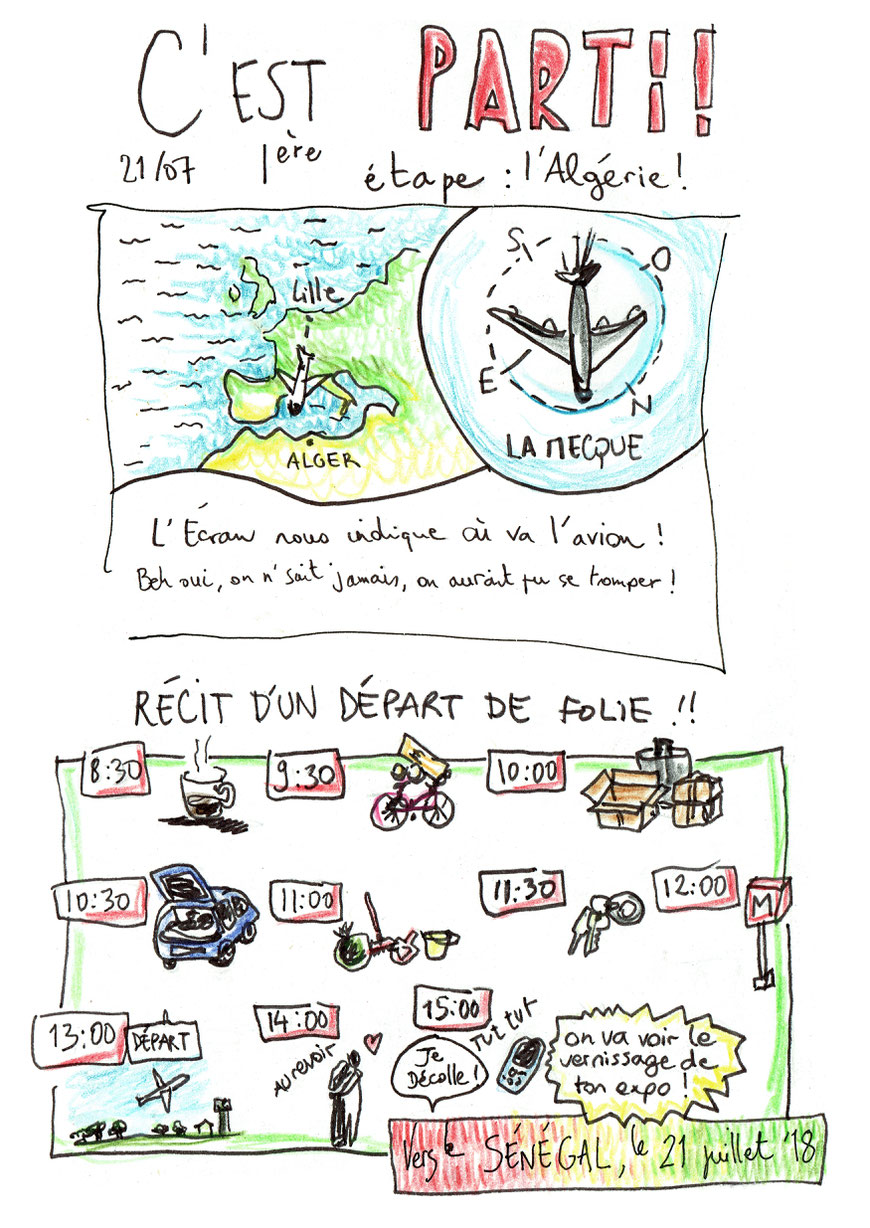 C'EST PARTI!
21/07 1ère étape : l'Algérie !
Lille
ALGER
S
O
E
N
LA MECQUE
L'Écran nous indique où va l'avion !
Beh oui, on n'sait jamais, on aurait pu se tromper !
RÉCIT D'UN DÉPART DE FOLIE !!
8:30
9:30
10:00
10:30
11:00
11:30
12:00
M
13:00
DÉPART
14:00
AU REVOIR
15:00
Je
DÉCOLLE !
TUT TUT
on va voir le
vernissage de
ton expo !
Vers le SÉNÉGAL, le 21 juillet '18